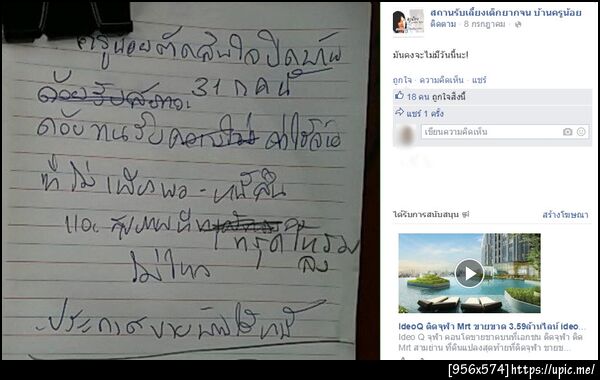 ครูน้อยตัดสินใจปิดบ้าน
31 กค นี้
ด้วย
ค่าใช้จ่าย
ที่ไม่เพียงพอ - หนี้สิน
และ สุขภาพที่ ทรุดโทรม
ลง
ไม่ไหว
ประกาศขายบ้านใช้หนี้
สถานรับเลี้ยงเด็กยากจน บ้านครูน้อย
ติดตาม · 8 กรกฎาคม ·
มันคงจะไม่มีวันนี้นะ!
ถูกใจ · ความคิดเห็น · แชร์
18 คน ถูกใจสิ่งนี้
แชร์ 1 ครั้ง
เขียนความคิดเห็น
ได้รับการสนับสนุน
สร้างโฆษณา
ideoQ ติดจุฬา Mrt ขายขาด 3.59ล้านไลน์ ideo...
Ideo Q จุฬา คอนโดขายขาดบนที่เอกชน ติดจุฬา ติด
Mrt สามย่าน ที่ดินแปลงสุดท้ายที่ติดจุฬา ขายข...
[956x574] https://upic.me/